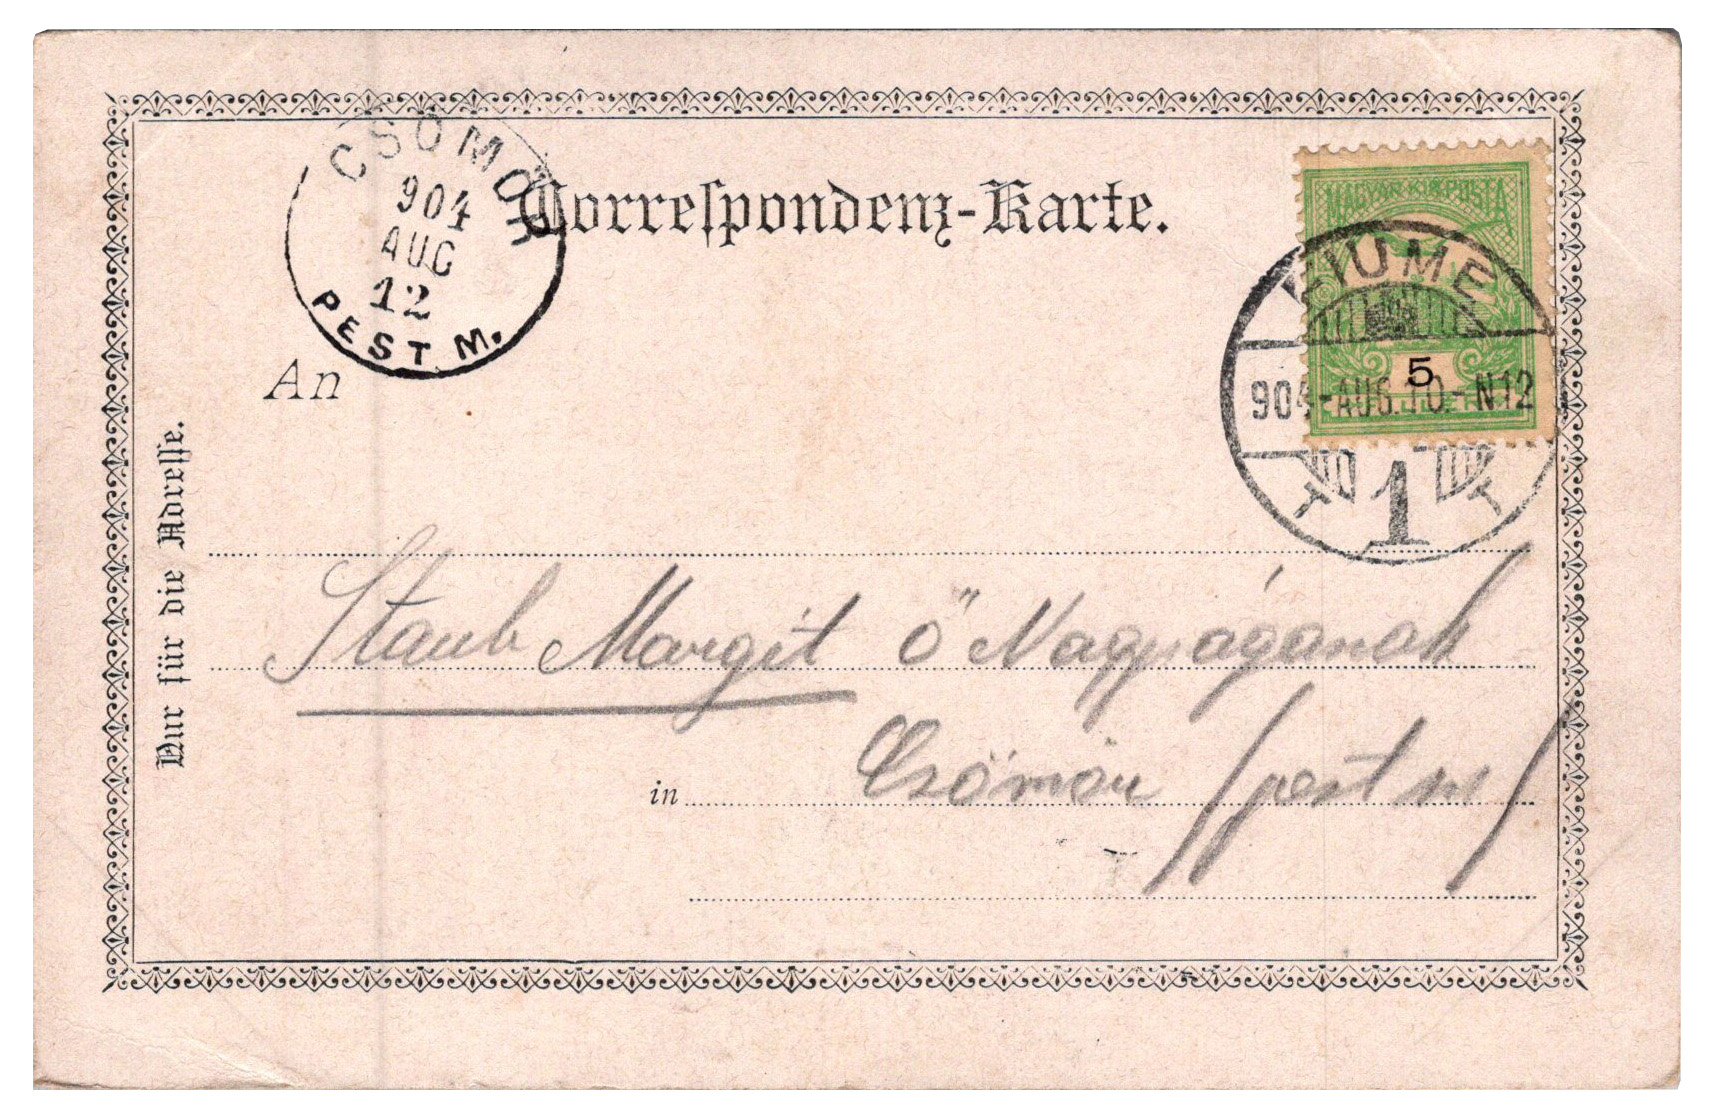 CSÖMÖR
904
AUG
12
PEST M.
Correspondenz-Karte.
MAGYAR KIR. POSTA
5
FIUME
904-AUG.10.-N12
1
An
Nur für die Adresse.
Staub Margit Ő Nagyságának
in Csömör /pest m/